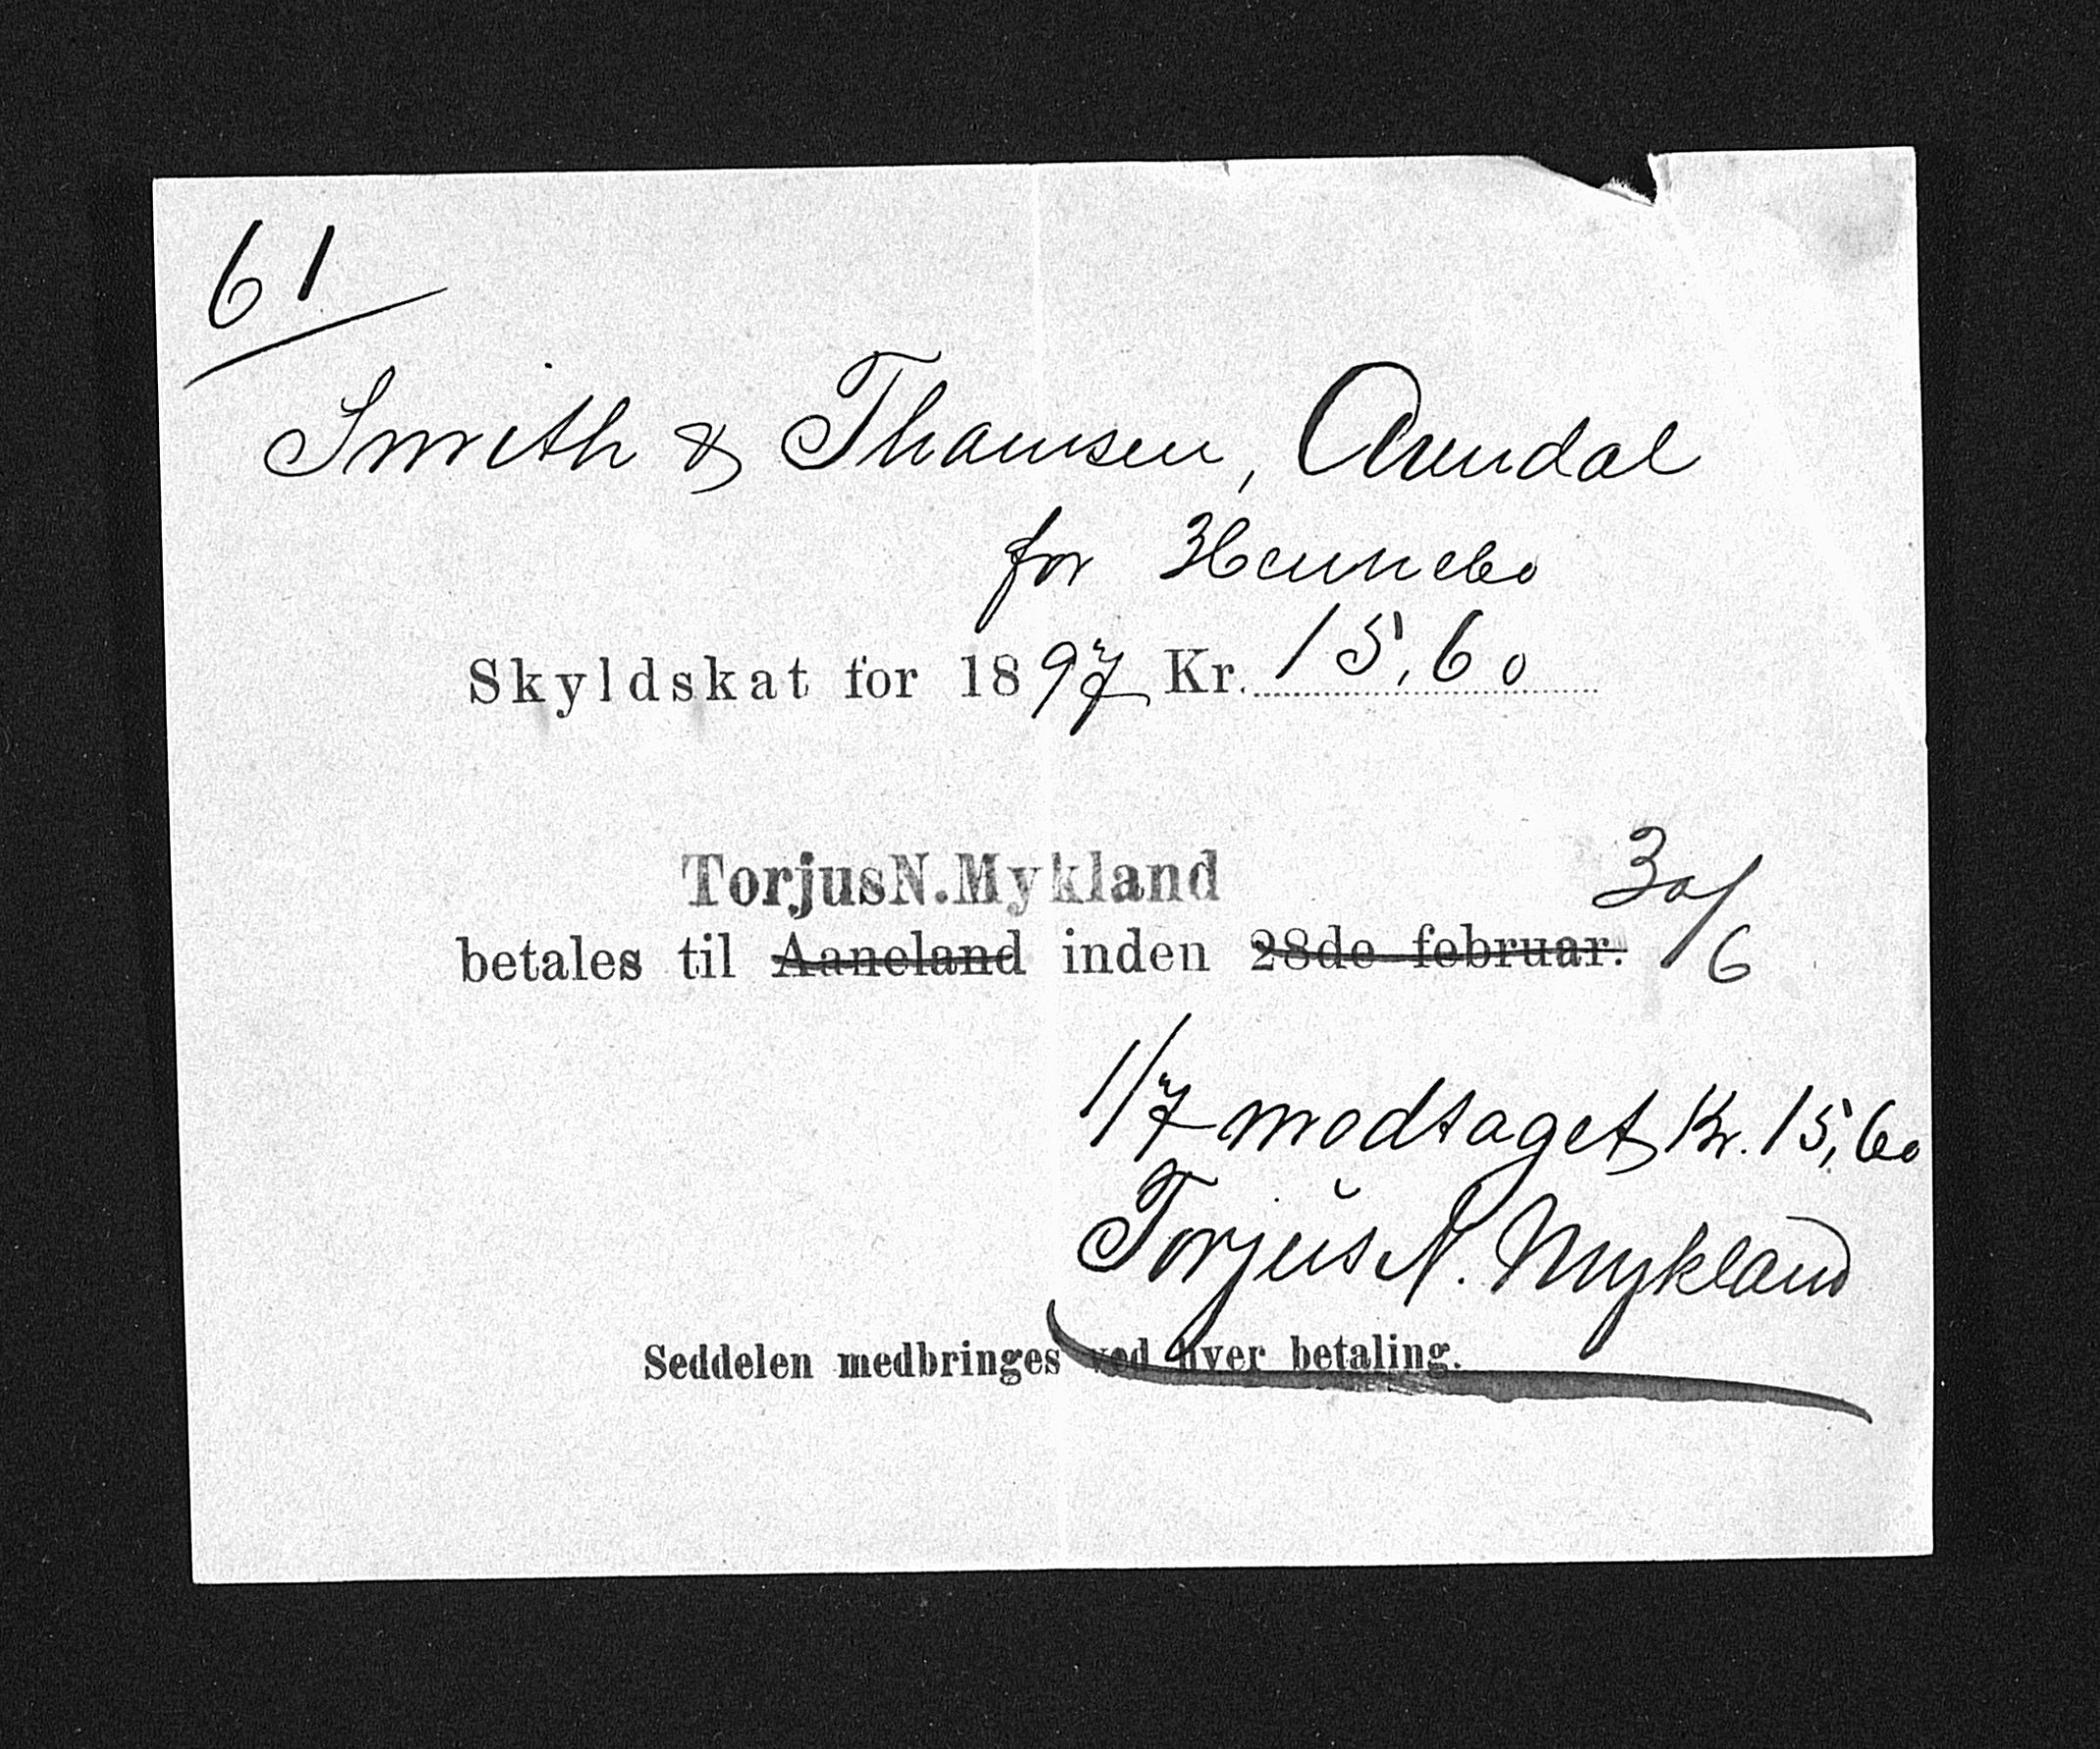 61
Smith & Thomsen, Arendal
for Hennebo
Skyldskat for 1897 Kr. 15,60
Torjus N. Mykland
30/6
betales til Aaneland inden 28de februar.
1/7 modtaget Kr. 15,60
Torjus N. Mykland
Seddelen medbringes ved hver betaling.